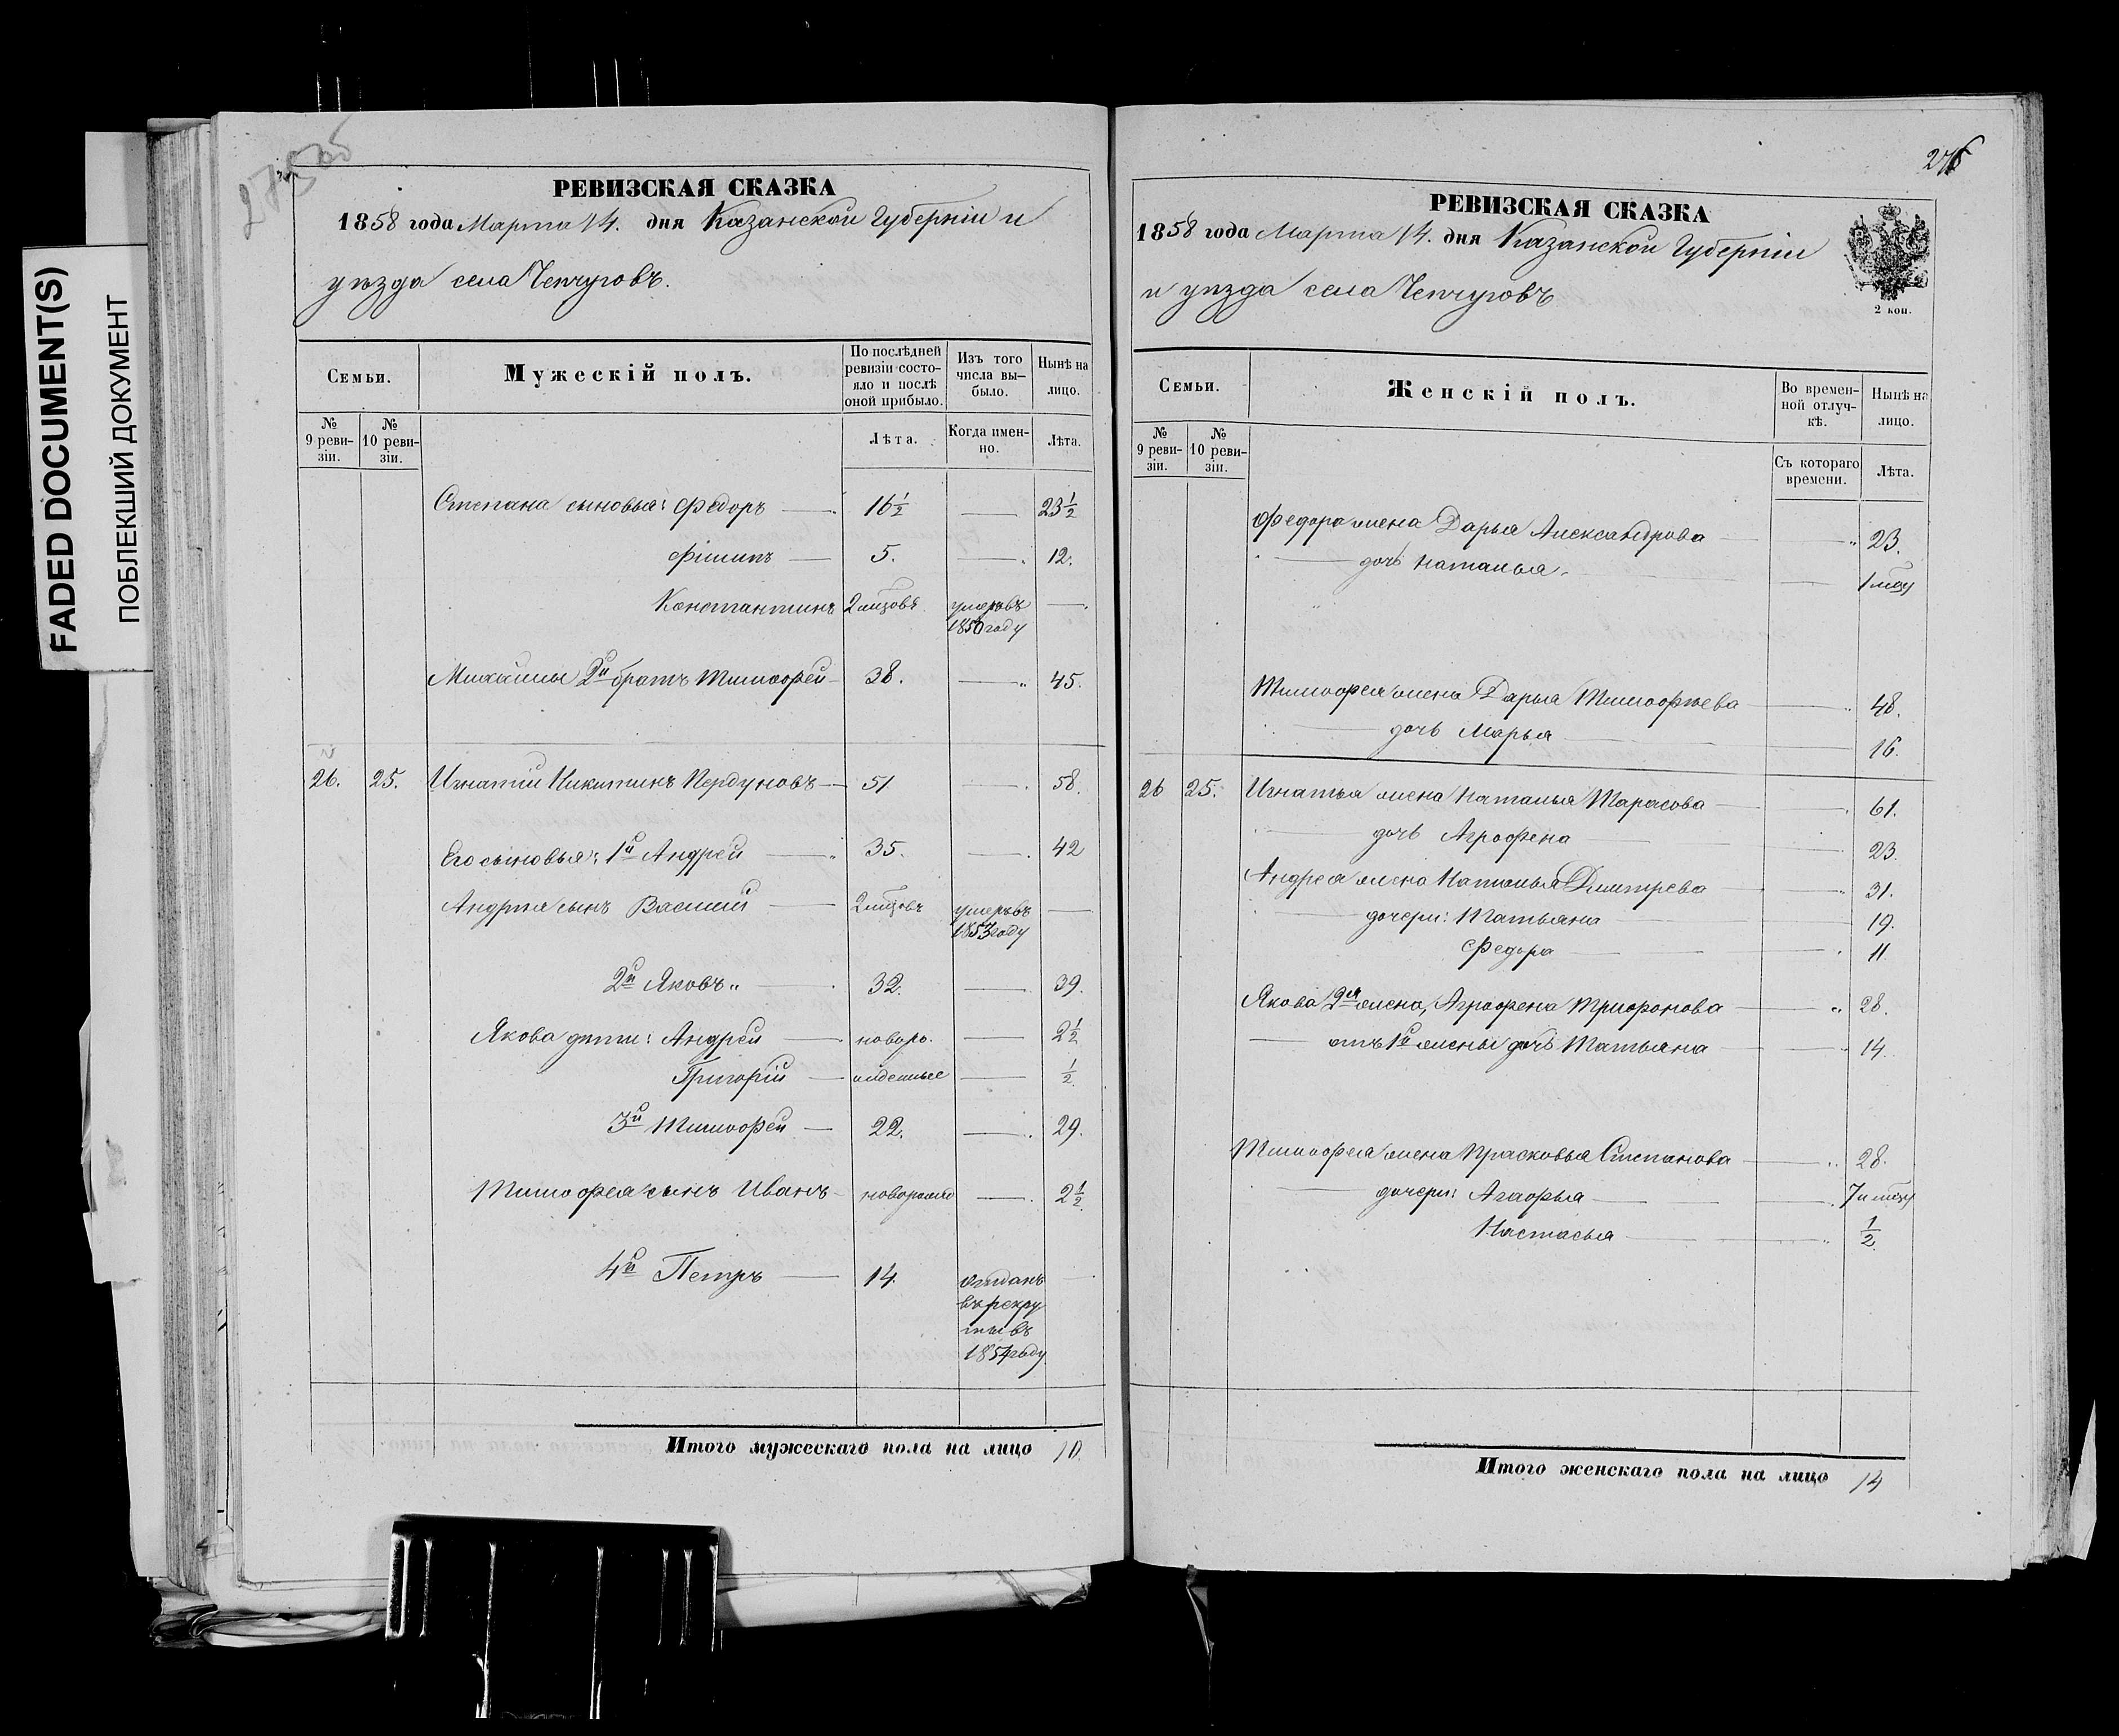 FADED DOCUMENT(S)
ПОБЛЕКШИЙ ДОКУМЕНТ
РЕВИЗСКАЯ СКАЗКА
1858 года Марта 14. дня Казанской Губерніи и
уѣзда села Чепчуговъ.
Семьи.
Мужескій полъ.
По послѣдней ревизіи состояло и послѣ оной прибыло.
Изъ того числа выбыло.
Нынѣ на лицо.
№ 9 ревизіи.
№ 10 ревизіи.
Лѣта.
Когда именно.
Лѣта.
Степана сыновья: Федоръ 16 1/2 — 23 1/2
Филипъ 5. — 12.
Константинъ 2 мѣсцовъ умеръ въ —
1850 году
Михайлы 2й братъ Тимофей 38. — 45.
26. 25. Игнатій Никитинъ Пердуновъ 51 — 58.
Его сыновья: 1й Андрей 35. — 42
Андрея сынъ Василий 2 мѣсцовъ умеръ въ —
1853 году
2й Яковъ 32. — 39.
Якова дѣти: Андрей новоро- — 2 1/2
Григорій жденные — 1/2
3й Тимофей 22. — 29.
Тимофея сынъ Иванъ новорожд — 2 1/2
4й Петръ 14. отданъ
въ рекру
ты въ
1854 году
Итого мужескаго пола на лицо 10.
276
РЕВИЗСКАЯ СКАЗКА
1858 года Марта 14. дня Казанской Губерніи
и уѣзда села Чепчуговъ
2 коп.
Семьи.
Женскій полъ.
Во временной отлучкѣ.
Нынѣ на лицо.
№ 9 ревизіи.
№ 10 ревизіи.
Съ котораго времени.
Лѣта.
Федора жена Дарья Александрова — 23.
— дочь Наталья — 1 мѣсц
Тимофея жена Дарья Тимофѣева — 48.
— дочь Марья — 16.
26 25. Игнатья жена Наталья Тарасова — 61.
— дочь Аграфена — 23.
Андрея жена Наталья Дмитрева — 31.
— дочери: Татьяна — 19.
Федора — 11
Якова 2ая жена, Аграфена Трифонова — 28.
— отъ 1й жены дочь Татьяна — 14.
Тимофея жена Прасковья Степанова — 28.
— дочери: Агафья — 7и мѣсц
Настасья — 1/2
Итого женскаго пола на лицо 14